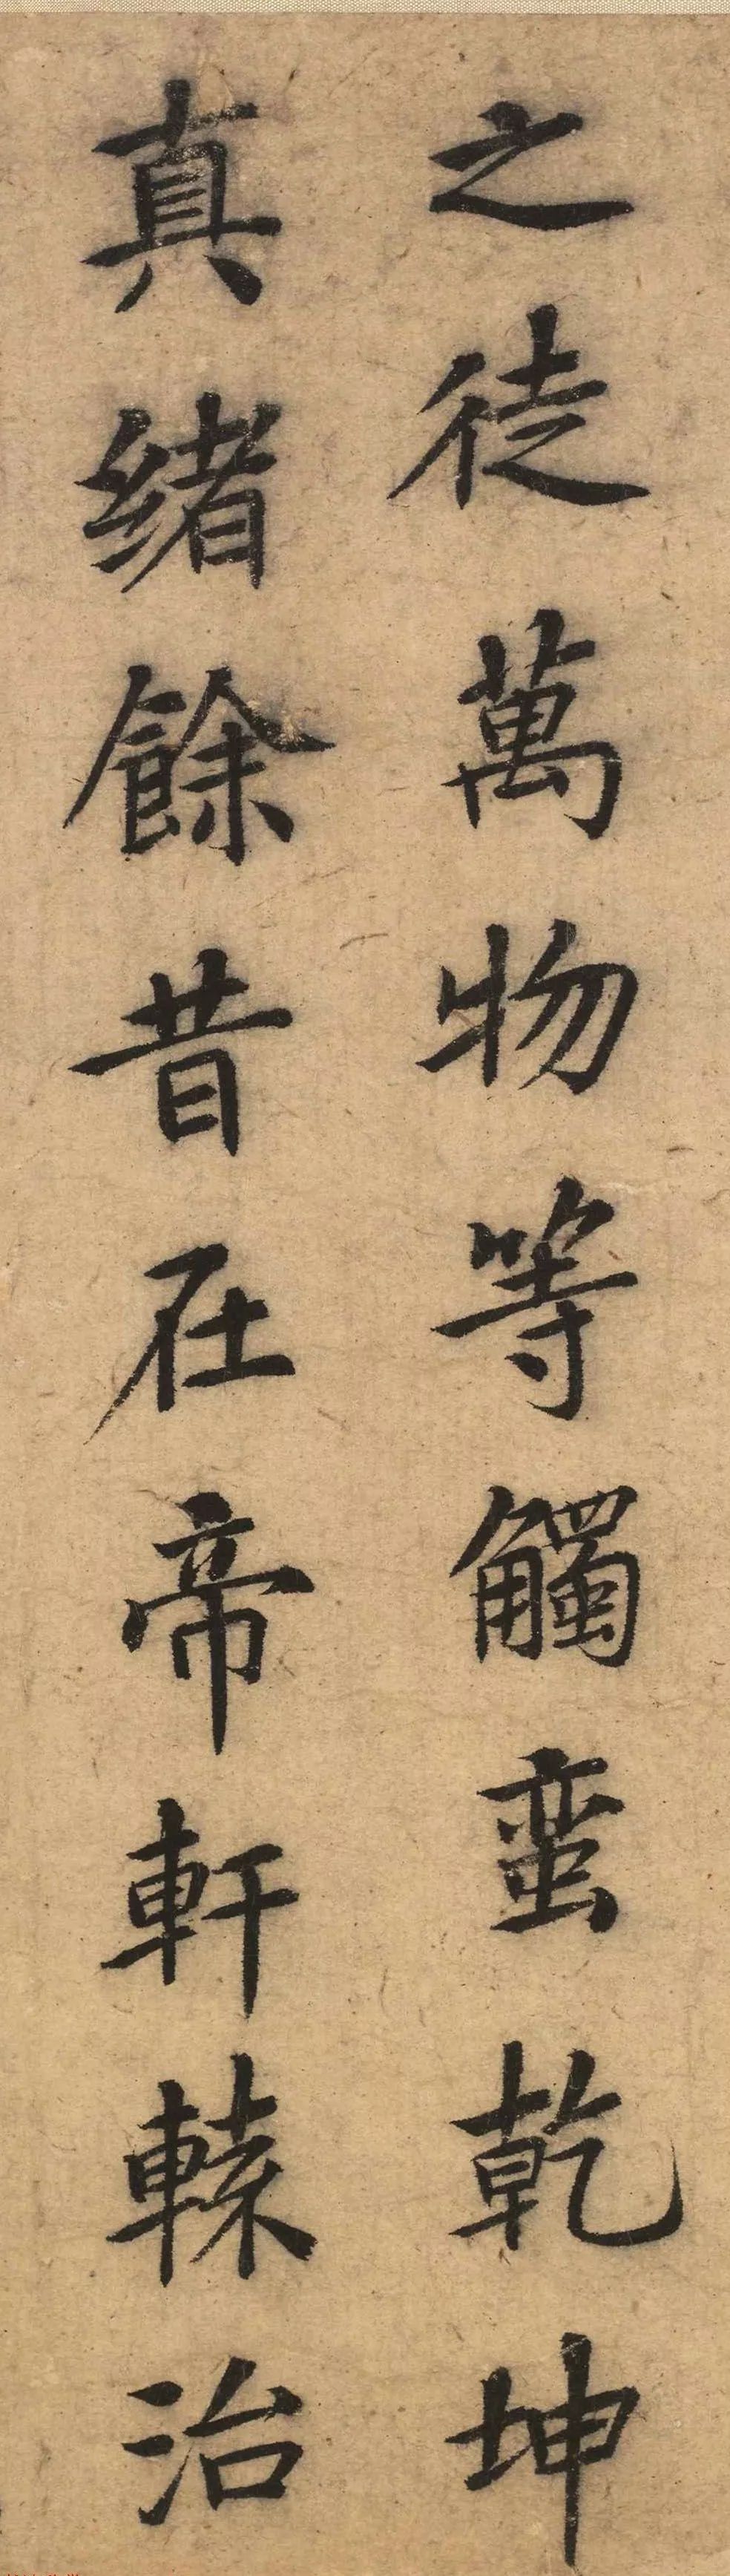 之徒萬物等觸蛮乾坤
真緒餘昔在帝軒轅治